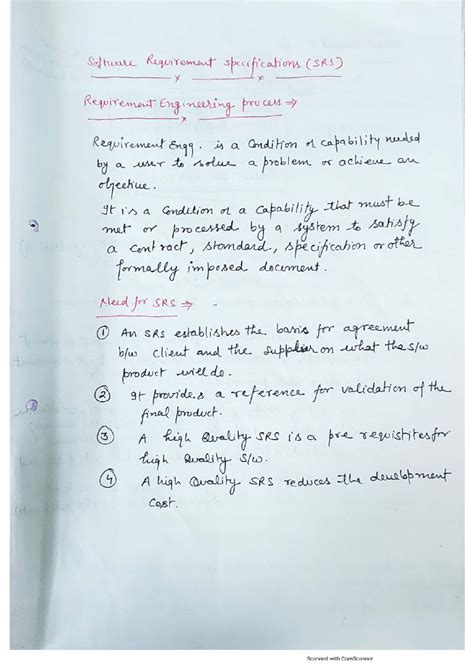 Software Requirement specifications (SRS)
Requirement Engineering process ⇒
Requirement Engg. is a Condition or capability needed
by a user to solve a problem or achieve an
objective.
It is a Condition or a Capability that must be
met or processed by a system to satisfy
a contract, standard, specification or other
formally imposed document.
Need for SRS ⇒
① An SRS establishes the basis for agreement
b/w client and the supplier on what the S/w
product will do.
② It provides a reference for validation of the
final product.
③ A high Quality SRS is a pre requistites for
high Quality S/w.
④ A high Quality SRS reduces the development
Cost.
Scanned with CamScanner